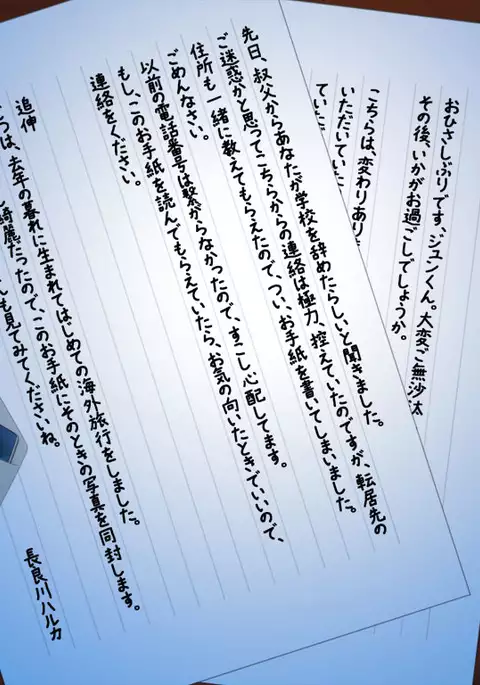 おひさしぶりです、ジュンくん。大変ご無沙汰
その後、いかがお過ごしでしょうか。
こちらは、変わりあり
いただいてい
ていた
先日、叔父からあなたが学校を辞めたらしいと聞きました。
ご迷惑かと思ってこちらからの連絡は極力、控えていたのですが、転居先の
住所も一緒に教えてもらえたので、つい、お手紙を書いてしまいました。
ごめんなさい。
以前の電話番号は繋がらなかったので、すこし心配してます。
もし、このお手紙を読んでもらえていたら、お気の向いたときでいいので、
連絡をください。
追伸
うは、去年の暮れに生まれてはじめての海外旅行をしました。
綺麗だったので、このお手紙にそのときの写真を同封します。
も見てみてくださいね。
長良川ハルカ